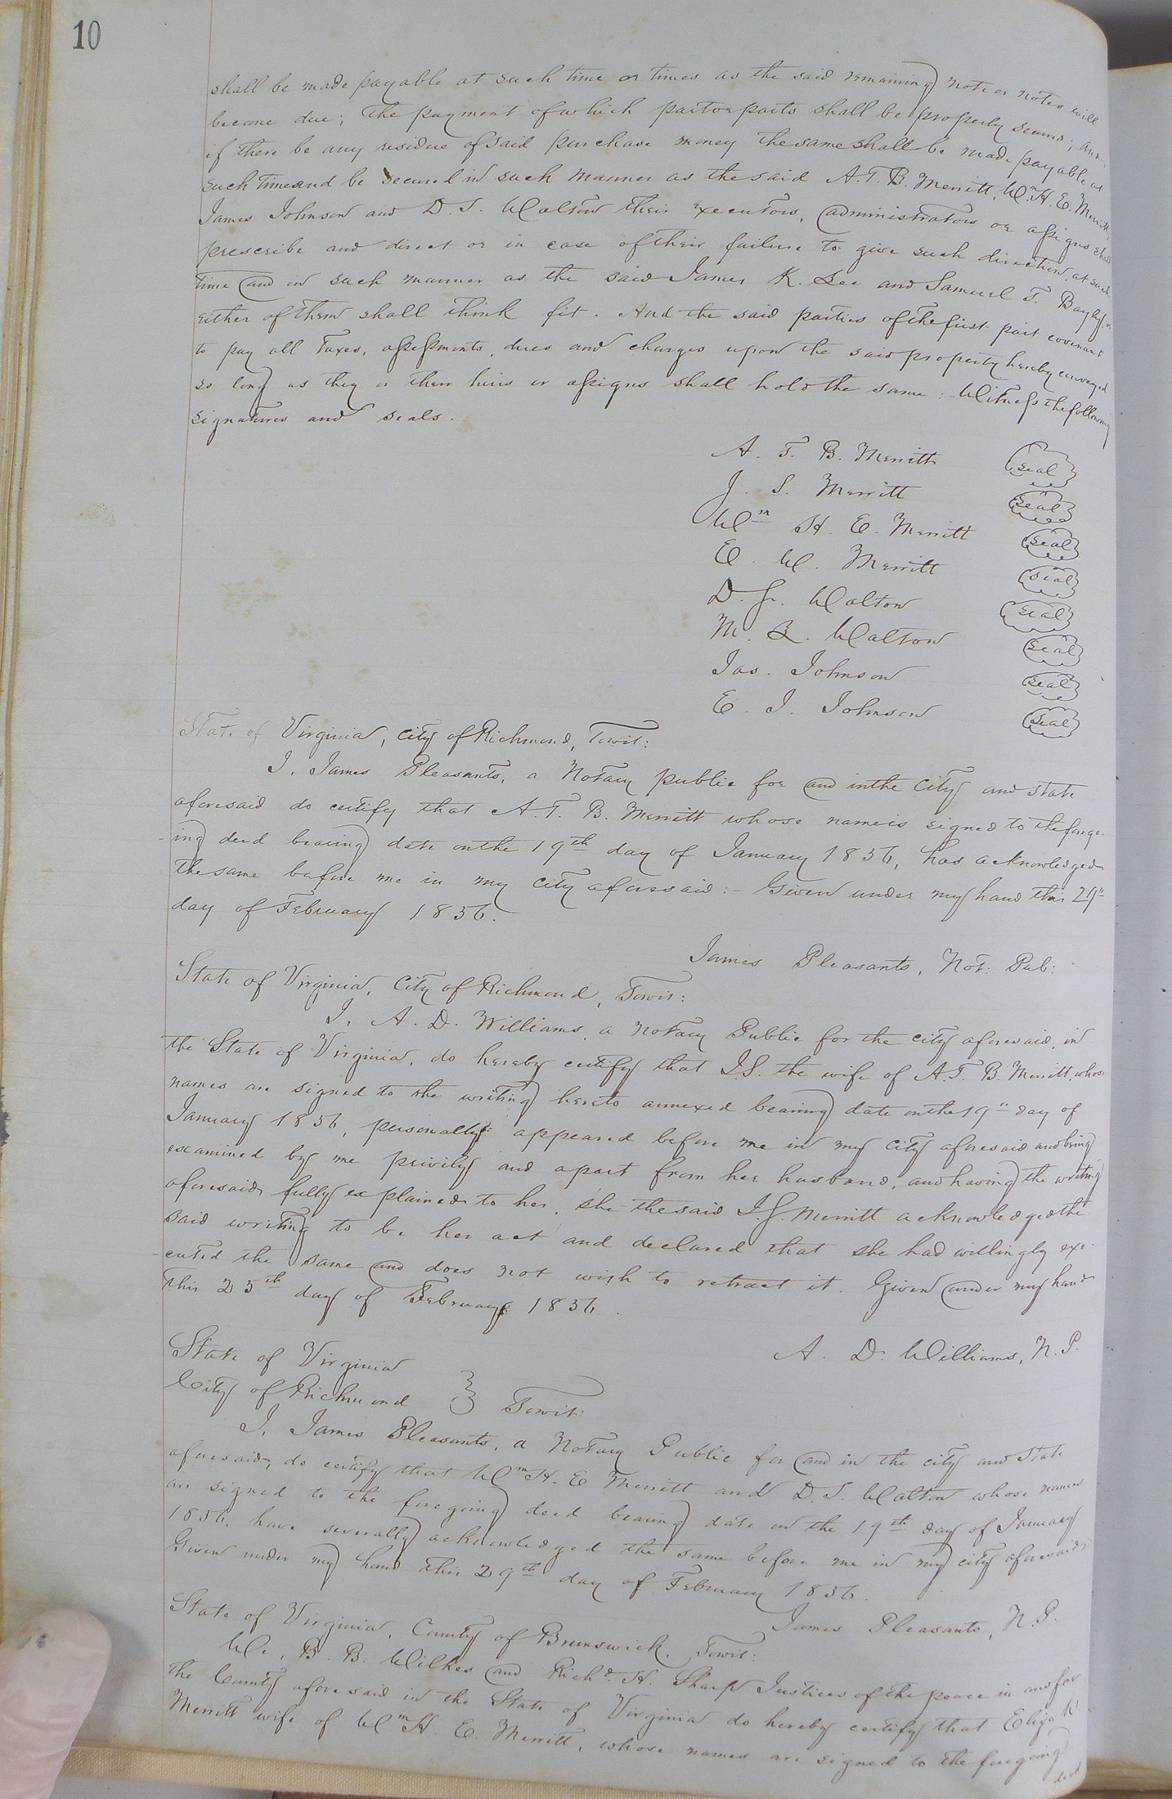 10
shall be made payable at such time or times as the said remaining note or notes will
become due; the payment of which part or parts shall be properly secured; and
if there be any residue of said purchase money the same shall be made payable at
such time and be secured in such manner as the said A. T. B. Merritt, Wm H. E. Merritt,
James Johnson and D. S. Walton their executors, administrators or assigns shall
prescribe and direct or in case of their failure to give such direction at such
time and in such manner as the said James K. Lee and Samuel T. Bayly, or
either of them shall think fit. And the said parties of the first part covenant
to pay all taxes, assessments, dues and charges upon the said property hereby conveyed
so long as they or their heirs or assigns shall hold the same: Witness the following
signatures and seals.
A. T. B. Merritt seal
J. S. Merritt seal
Wm H. E. Merritt seal
E. W. Merritt seal
D. S. Walton seal
M. R. Walton seal
Jas. Johnson seal
E. J. Johnson seal
State of Virginia, City of Richmond, Towit:
I, James Pleasants, a Notary public for and in the City and State
aforesaid do certify that A. T. B. Merritt whose name is signed to the forego-
-ing deed bearing date on the 19th day of January 1856, has acknowledged
the same before me in my city aforesaid:- Given under my hand this 29"
day of February 1856.
James Pleasants, Not: Pub:
State of Virginia, City of Richmond, Towit:
I, A. D. Williams, a Notary Public for the city aforesaid, in
the State of Virginia, do hereby certify that J. S. the wife of A. T. B. Merritt, whose
names are signed to the writing hereto annexed bearing date on the 19" day of
January 1856, personally appeared before me in my city aforesaid and being
examined by me privily and apart from her husband, and having the writing
aforesaid fully explained to her, she the said J. S. Merritt acknowledged the
said writing to be her act and declared that she had willingly exe-
-cuted the same and does not wish to retract it. Given under my hand
this 25th day of February 1856.
A. D. Williams, N. P.
State of Virginia
City of Richmond } Towit:
I, James Pleasants, a Notary Public for and in the city and State
aforesaid, do certify that Wm H. E. Merritt and D. S. Walton whose names
are signed to the foregoing deed bearing date on the 19th day of January
1856, have severally acknowledged the same before me in my city aforesaid:
Given under my hand this 29th day of February 1856.
James Pleasants, N. P.
State of Virginia, County of Brunswick, Towit:
We, B. B. Wilkes and Richd. H. Sharp Justices of the peace in and for
the County aforesaid in the State of Virginia do hereby certify that Eliza W.
Merritt wife of Wm H. E. Merritt, whose names are signed to the foregoing
deed